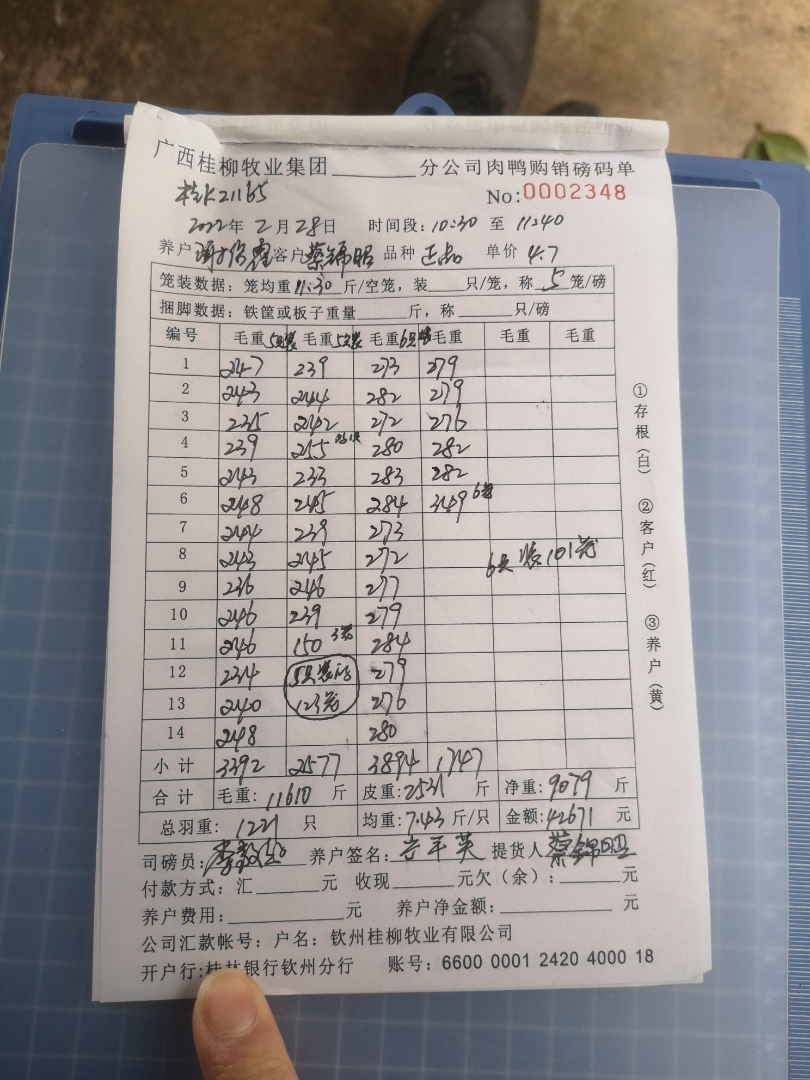 广西桂柳牧业集团________分公司肉鸭购销磅码单
桂K21165
No:0002348
2022年2月28日 时间段:10:30至11:40
养户 客户蔡锦昭 品种 正品 单价 4.7
笼装数据:笼均重11.30斤/空笼,装____只/笼,称5笼/磅
捆脚数据:铁筐或板子重量____斤,称____只/磅
编号 毛重5只装 毛重5只装 毛重6只装 毛重 毛重 毛重
1 247 239 273 279
2 243 244 282 279
3 235 242 272 276
4 239 255 280 282
5 243 233 283 282
6 248 245 284 349 6笼
7 244 239 273
8 243 245 272 6只装101笼
9 236 246 277
10 246 239 279
11 246 150 3笼 284
12 234 5只装的 279
13 240 123笼 276
14 248 280
小计 3392 2577 3894 1747
合计 毛重:11610斤 皮重:2531斤 净重:9079斤
总羽重:1221只 均重:7.43斤/只 金额:42671元
司磅员: 养户签名: 提货人蔡锦昭
付款方式:汇______元 收现______元欠(余):______元
养户费用:____________元 养户净金额:____________元
公司汇款帐号:户名:钦州桂柳牧业有限公司
开户行:桂林银行钦州分行 账号:6600 0001 2420 4000 18
①存根(白) ②客户(红) ③养户(黄)